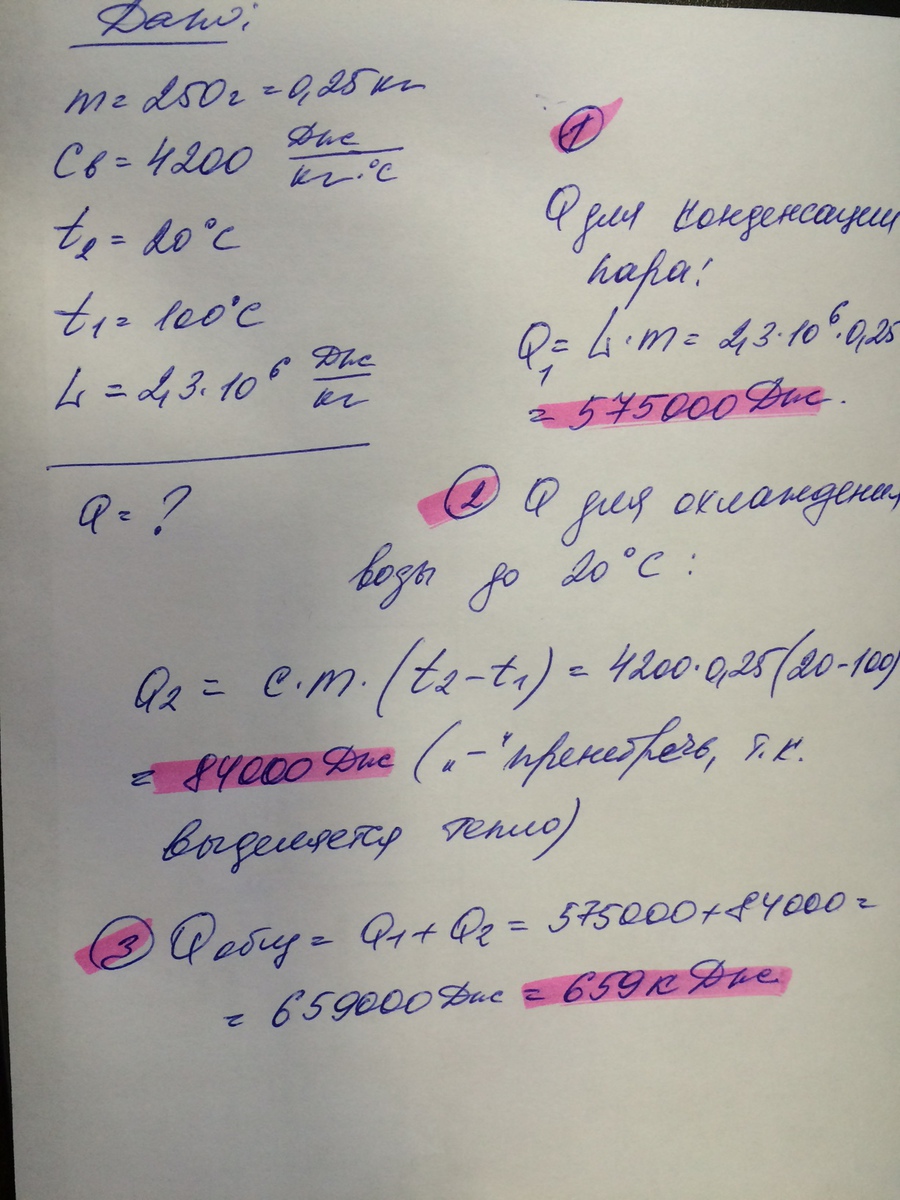 Дано:
m = 250г = 0,25 кг
Cв = 4200 Дж/кг·°С
t₂ = 20°С
t₁ = 100°С
L = 2,3·10⁶ Дж/кг
Q = ?
1
Q для конденсации
пара:
Q₁ = L·m = 2,3·10⁶·0,25
= 575000 Дж.
2 Q для охлаждения
воды до 20°С :
Q₂ = c·m·(t₂-t₁) = 4200·0,25(20-100)
= 84000 Дж („-" пренебречь, т.к.
выделяется тепло)
3 Q общ = Q₁ + Q₂ = 575000+84000 =
= 659000 Дж = 659 к Дж.